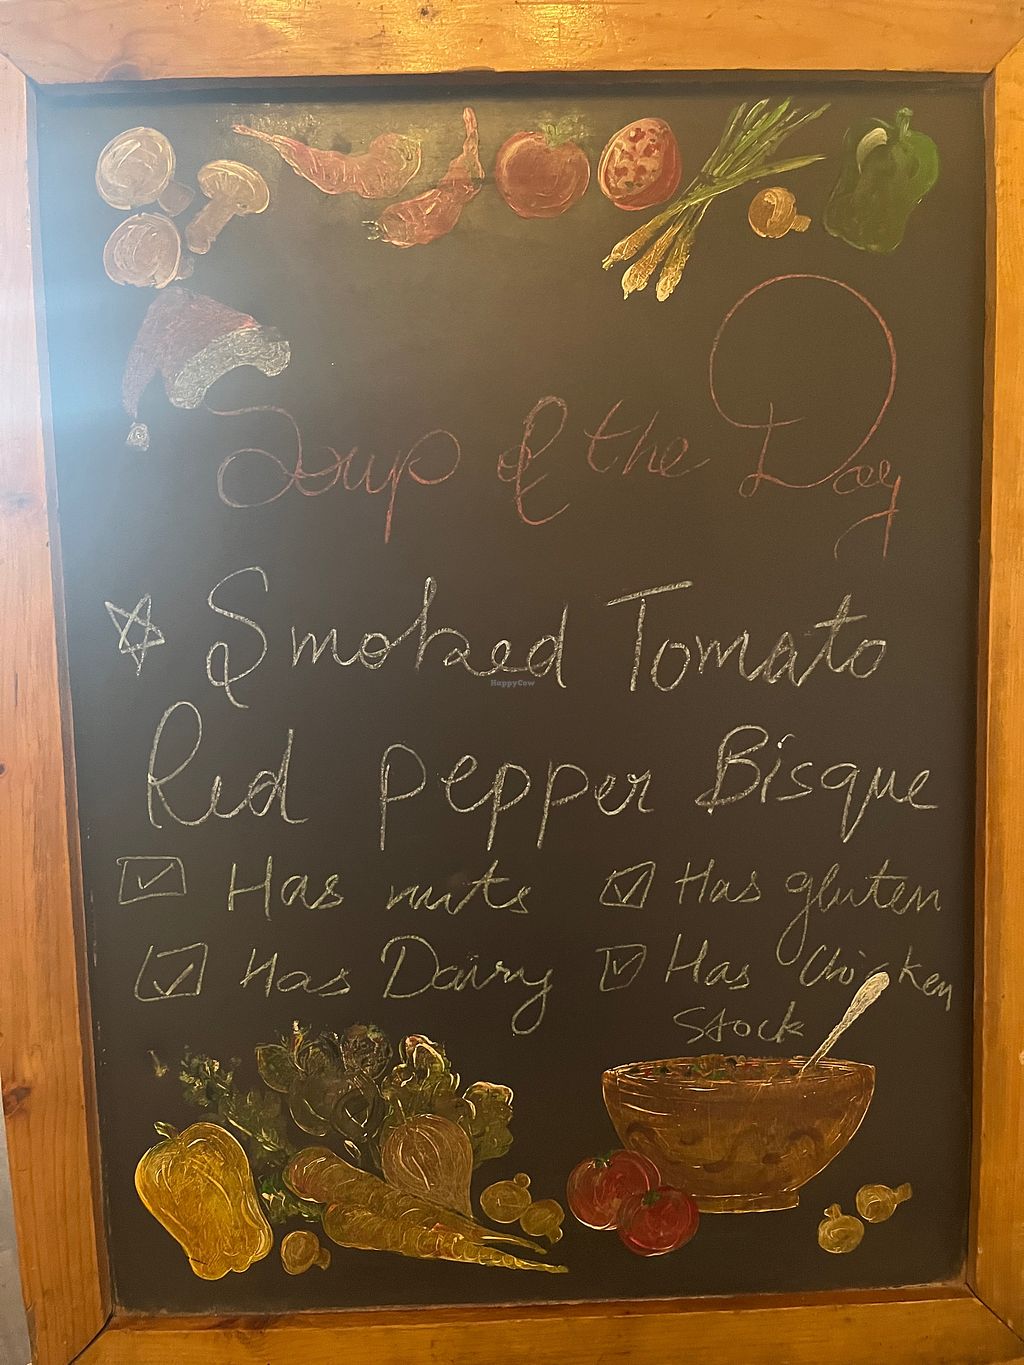 Soup of the Day
☆ Smoked Tomato
HappyCow
Red pepper Bisque
☑ Has nuts ☑ Has gluten
☑ Has Dairy ☑ Has Chicken
Stock